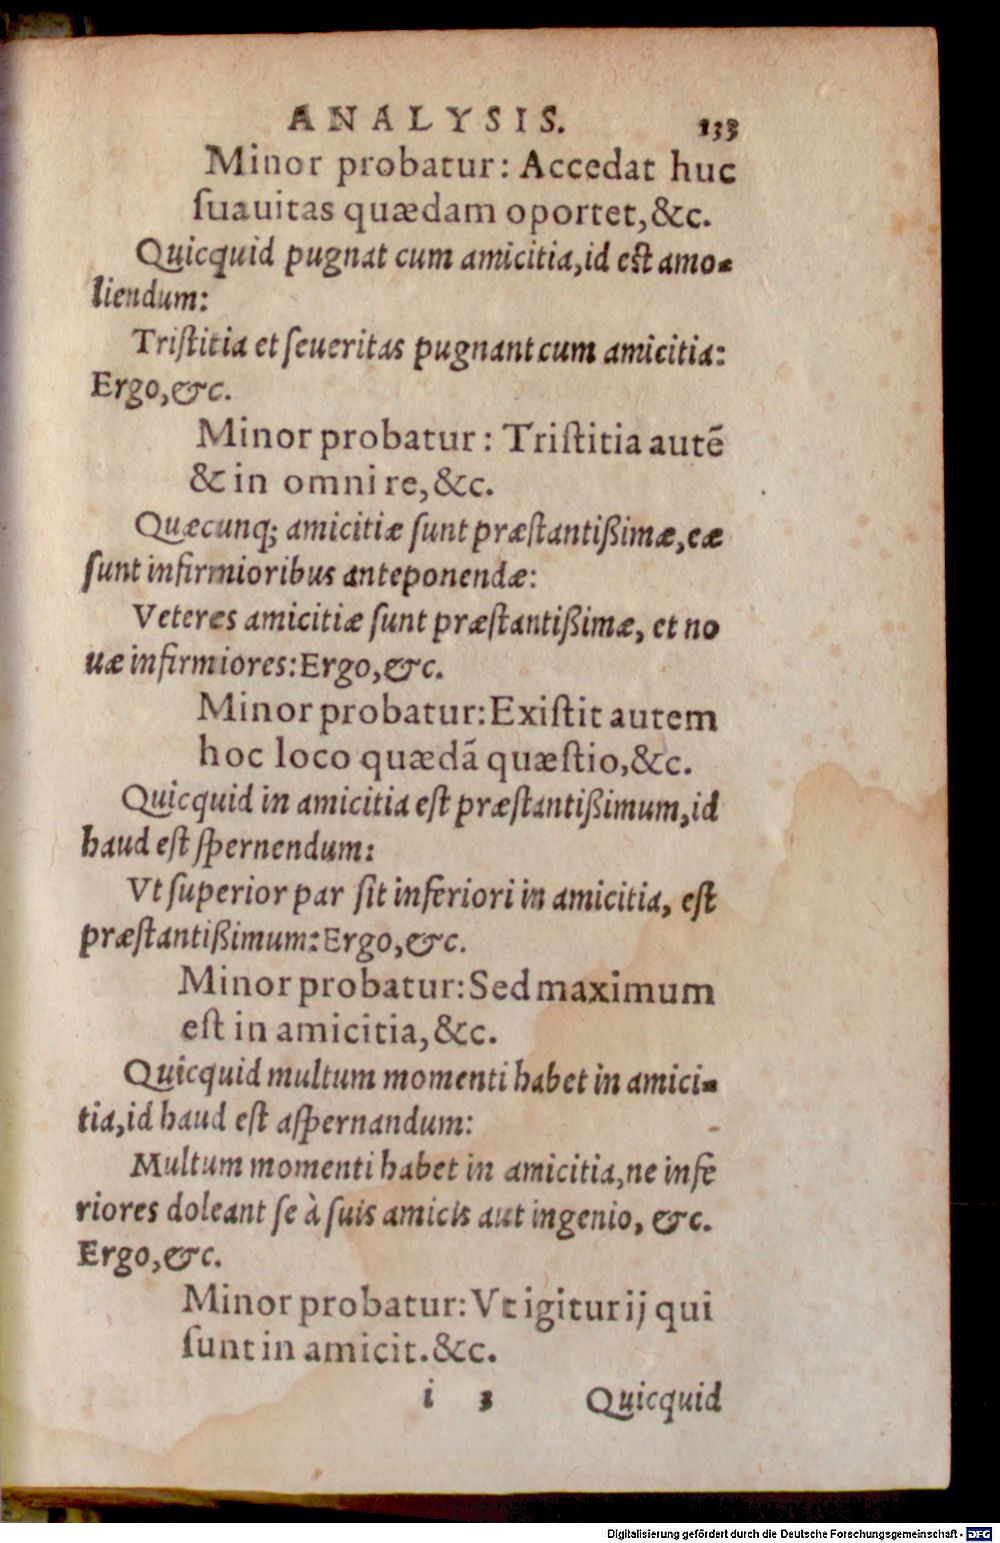 ANALYSIS. 133
Minor probatur: Accedat huc
ſuauitas quædam oportet,&c.
Quicquid pugnat cum amicitia,id eſt amo-
liendum:
Triſtitia et ſeueritas pugnant cum amicitia:
Ergo,&c.
Minor probatur: Triſtitia autẽ
& in omni re,&c.
Quæcunq; amicitiæ ſunt præſtantißimæ,eæ
ſunt infirmioribus anteponendæ:
Veteres amicitiæ ſunt præſtantißimæ, et no
uæ infirmiores:Ergo,&c.
Minor probatur:Exiſtit autem
hoc loco quædã quæſtio,&c.
Quicquid in amicitia eſt præſtantißimum,id
haud eſt ſpernendum:
Vt ſuperior par ſit inferiori in amicitia, eſt
præſtantißimum:Ergo,&c.
Minor probatur:Sed maximum
eſt in amicitia,&c.
Quicquid multum momenti habet in amici-
tia,id haud eſt aſpernandum:
Multum momenti habet in amicitia,ne infe
riores doleant ſe à ſuis amicis aut ingenio, &c.
Ergo,&c.
Minor probatur:Vt igitur ij qui
ſunt in amicit.&c.
i 3 Quicquid
Digitalisierung gefördert durch die Deutsche Forschungsgemeinschaft - DFG